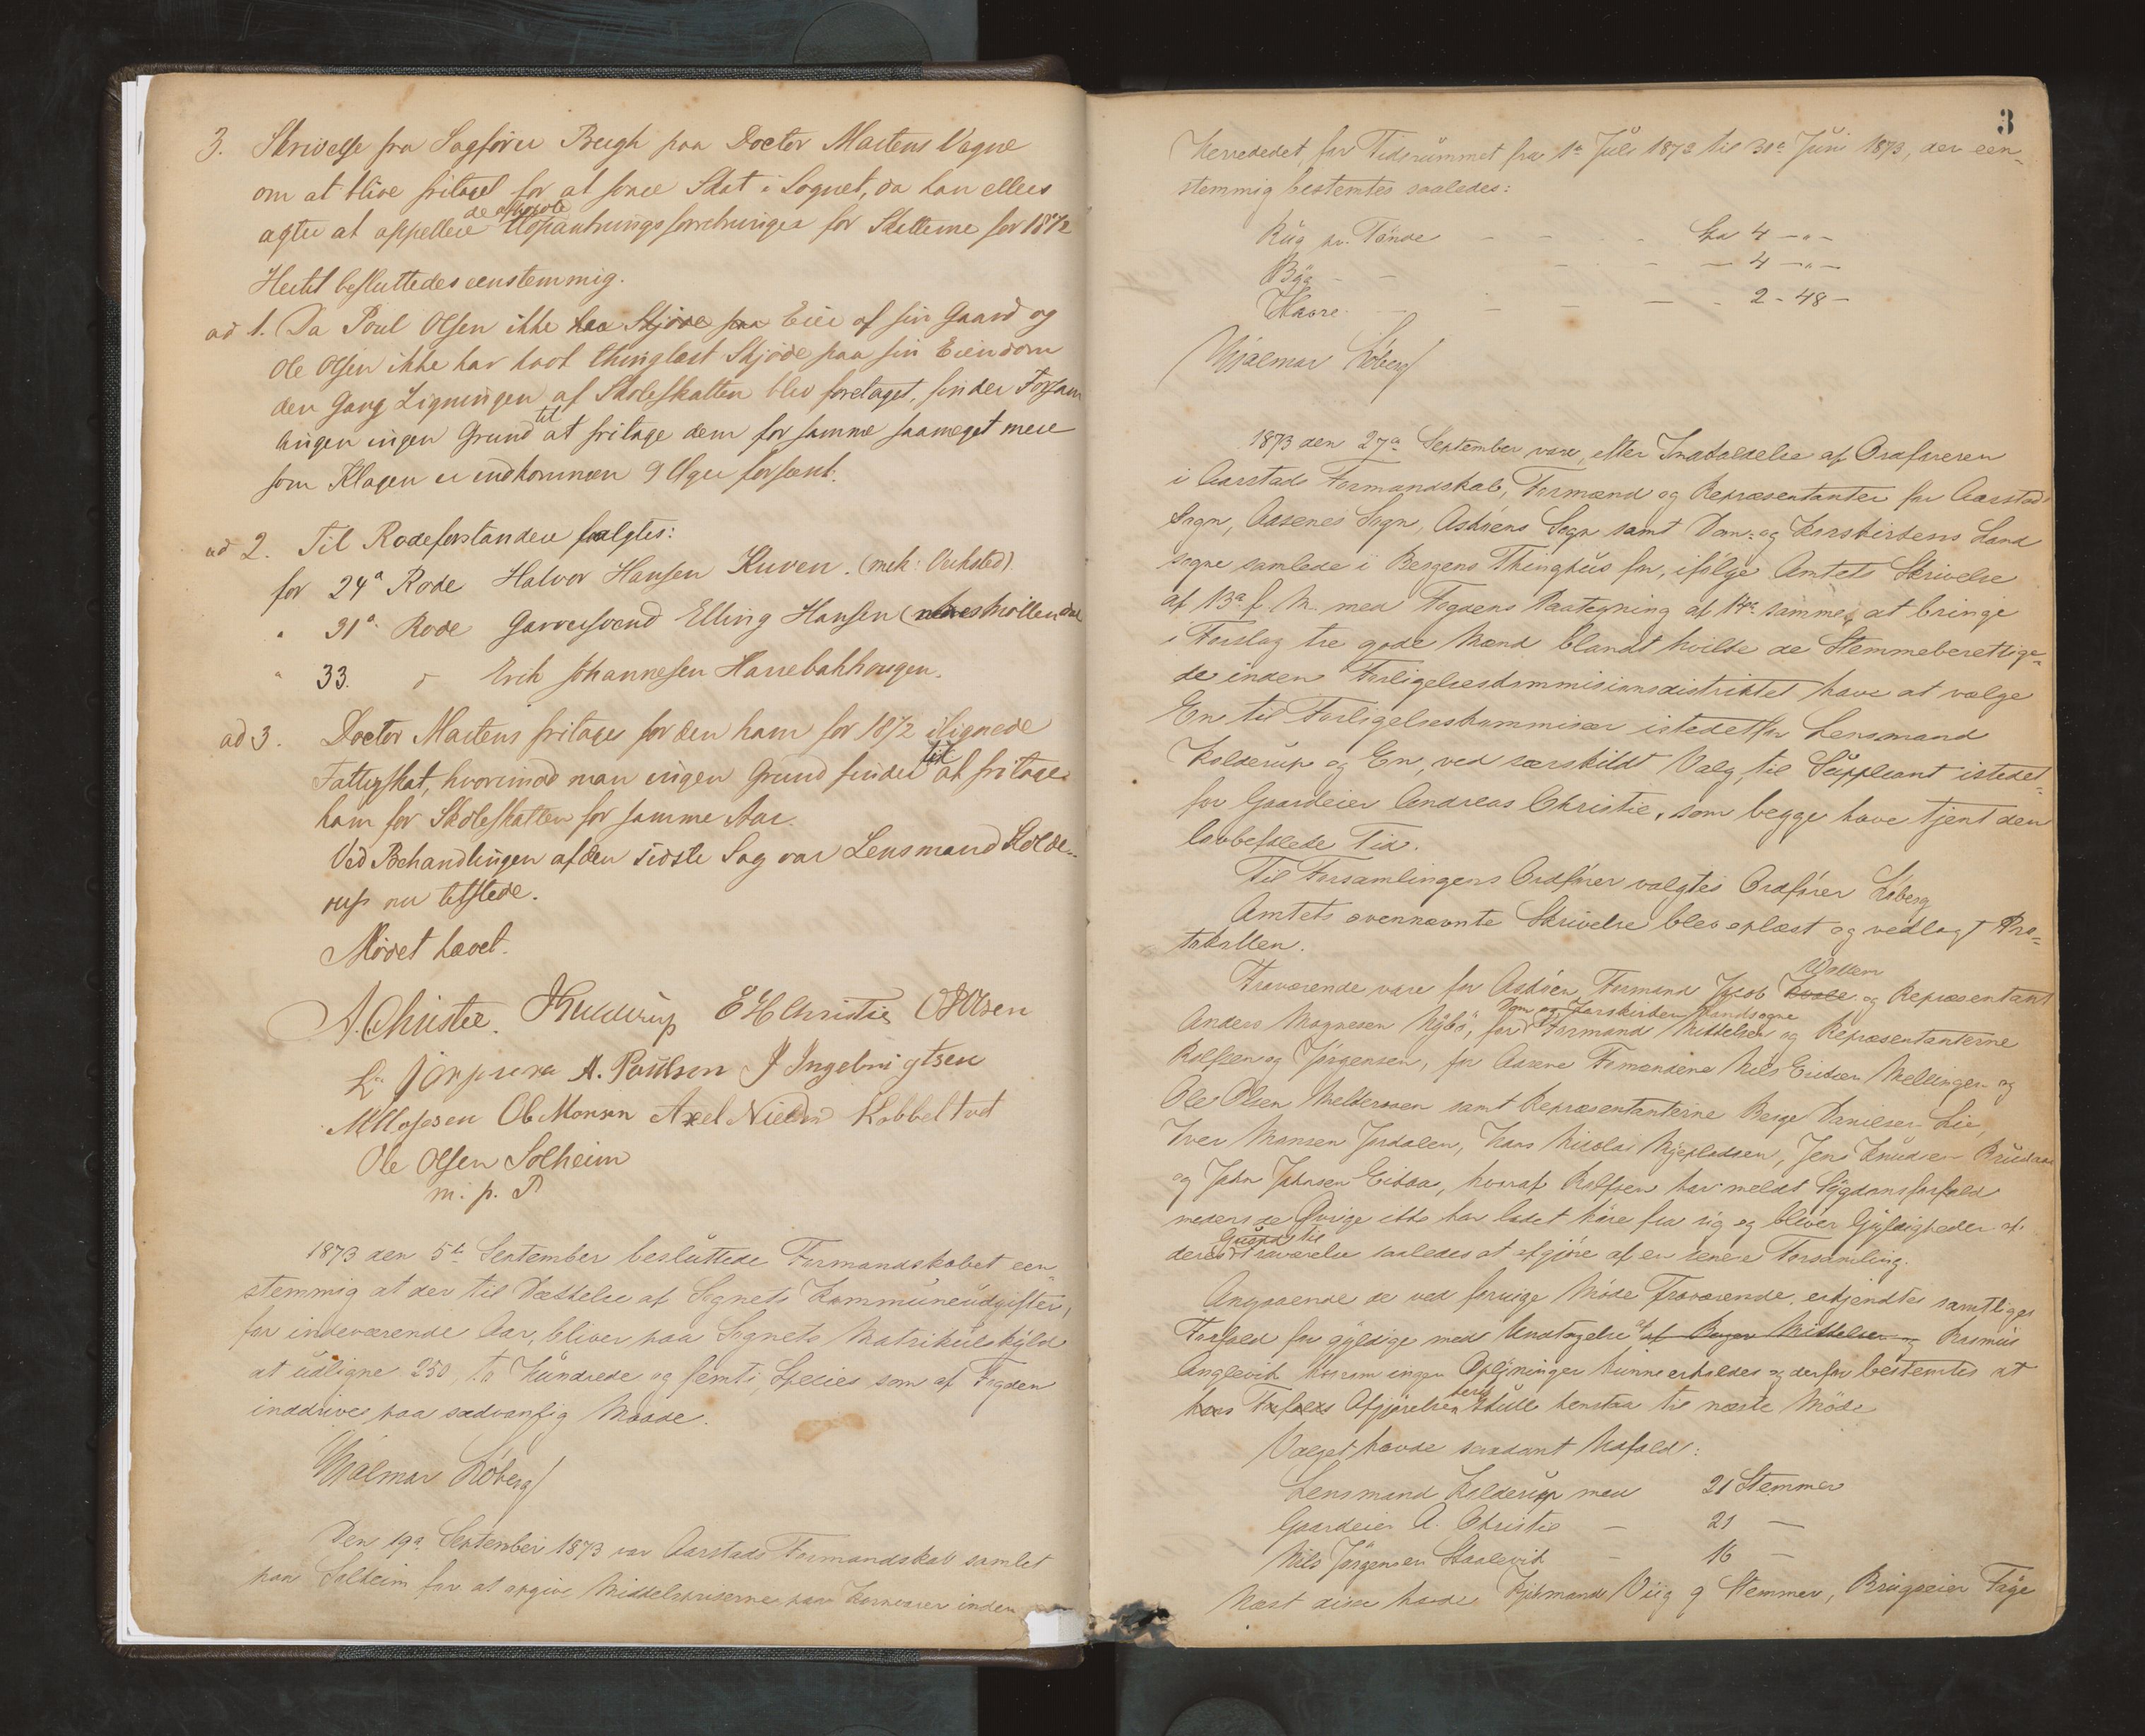 3. Skrivelse fra Sagfører Beegh paa Doctor Martens Vegne
om at blive fritaget for at svare Skat i Sognet, da han ellers
agter at appellere de afholdte Udpantningsforretninger for Skatterne for 1872
Hertil besluttedes eenstemmig.
ad 1. Da Poul Olsen ikke Eier af sin Gaard og
Ole Olsen ikke har havt thinglæst Skjøde paa sin Eiendom
den Gang Ligningen af Skoleskatten blev foretaget, finder Forsam
lingen ingen Grund til at fritage dem for samme saameget mere
som Klagen er indkommen 9 Uger forseent.
ad 2. Til Rodeforstandere valgtes:
for 24a Rode Halvor Hansen Kuven. (mek: Verksted).
" 31a Rode Garversvend Elling Hansen
" 33. " Erik Johannesen Harrebakhougen.
ad 3. Doctor Martens fritages for den ham for 1872 ilignede
Fattigskat, hvorimod man ingen Grund finder til at fritage
ham for Skoleskatten for samme Aar.
Ved Behandlingen af den sidste Sag var Lensmand Kolde-
rup nu tilstede.
Mødet hævet.
A. Christie. JKolderup E H Christie O Olsen
A. Poulson J Ingebrigtsen
M Mossen Ob Monsen Axel Nielsen Kobbeltvet
Ole Olsen Solheim
m. p. P
1873 den 5te September besluttede Formandskabet een
stemmig at der til Dækkelse af Sognets Kommuneudgifter,
for indeværende Aar, bliver paa Sognets Matrikulskyld
at udligne 250, to Hundrede og femti Species som af Fogden
inddrives paa sædvanlig Maade.
Hjalmar Løberg
Den 19a September 1873 var Aarstads Formandskab samlet
paa Solheim for at opgive Middelpriserne paa Kornvarer inden
3
Herredet, for Tidsrummet fra 1a Juli 1872 til 31a Juni 1873, der een-
stemmig bestemtes saaledes:
Rug pr. Tønde - - - Spd 4 - " -
Byg - - - - - 4 - " -
Havre - - - - 2 - 48 -
Hjalmar Løberg
1873 den 27a September vare, efter Indkaldelse af Ordføreren
i Aarstads Formandskab, Formænd og Repræsentanter for Aarstad
Sogn, Aasenes Sogn, Askøens Sogn samt Dom- og Korskirkens Land
sogne samlede i Bergens Thinghus for, ifølge Amtets Skrivelse
af 13a f. M. med Fogdens Paategning af 14a samme, at bringe
i Forslag tre gode Mænd blandt hvilke de Stemmeberettige-
de inden Forligelseskommisionsdistriktet have at vælge
En til Forligelseskommisær istedetfor Lensmand
Kolderup og En, ved særskildt Valg, til Suppleant istedet-
for Gaardeier Andreas Christie, som begge have tjent den
lovbefalede Tid.
Til Forsamlingens Ordfører valgtes Ordfører Løberg
Amtets ovennævnte Skrivelse blev oplæst og vedlagt Pro-
tokollen.
Fraværende vare for Askøen Formand Jacob Wollen og Repræsentant
Anders Magnesen Nybø, for Dom og Korskirken Landsogne Formand Mikkelsen og Repræsentanterne
Rolfsen og Jørgensen, for Aasene Formændene Nils Eriksen Mellingen og
Ole Olsen Melkeraaen samt Repræsentanterne Berge Danielsen Lie,
Iver Monsen Jordalen, Hans Nicolai Myrpladsen, Jens Knudsen
og John Johnsen Eidsaa, hvoraf Rolfsen har meldt Sygdomsforfald
medens de Øvrige ikke har ladet høre fra sig og bliver Gyldigheden af
deres Grund til Fraværelse saaledes at afgjøre af en senere Forsamling.
Angaaende de ved forrige Møde Fraværende erkjendtes samtliges
Forfald for gyldige med Undtagelse af Rasmus
Anglevik hvorom ingen Oplysninger kunne erholdes og derfor bestemtes at
Afgjørelsen herom skulde henstaa til næste Møde
Valget havde saadant Udfald:
Lensmand Kolderup med 21 Stemmer
Gaardeier A. Christie - 21 -
Nils Jørgensen Skaalevik - 16 -
Næst disse havde Kjøbmand Wiig 9 Stemmer, Brugseier Fåye